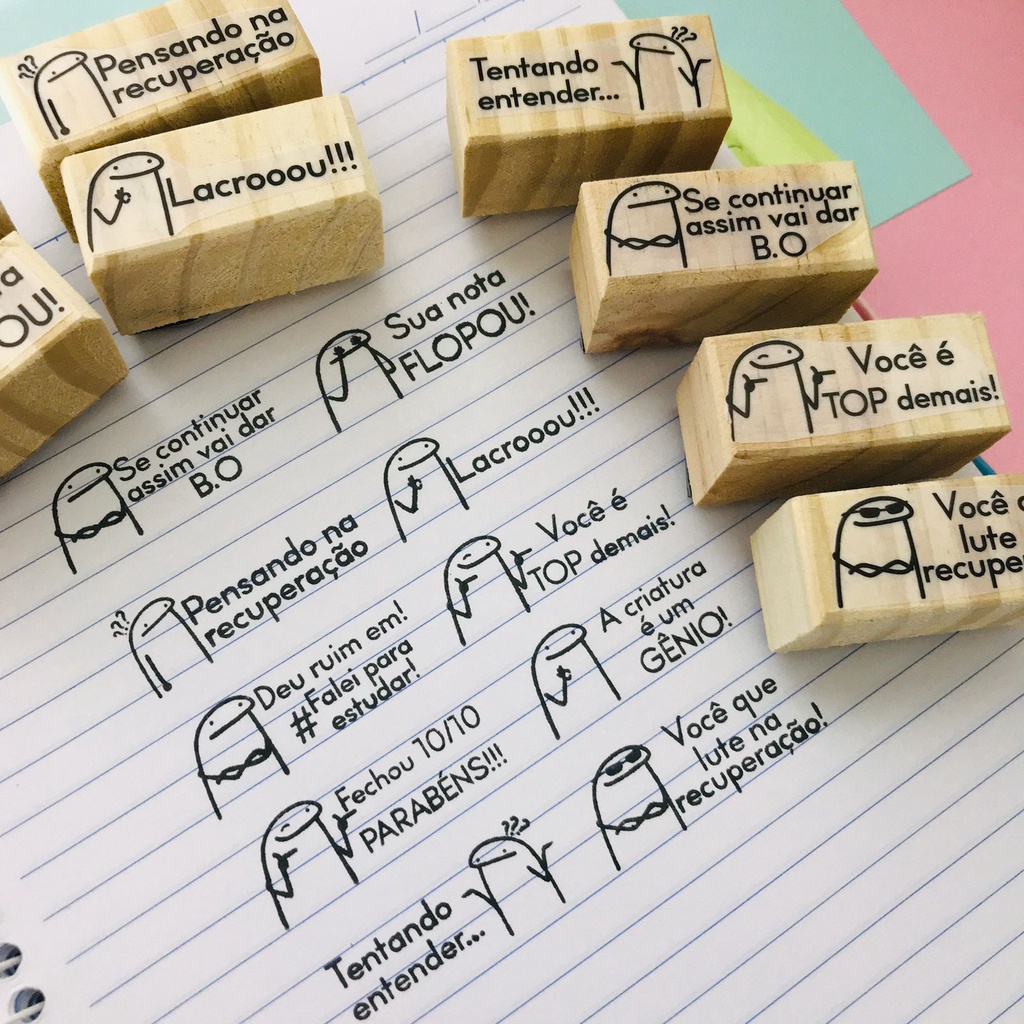 ???
Pensando na
recuperação
Lacrooou!!!
OU!
???
Tentando
entender...
Se continuar
assim vai dar
B.O
Você é
TOP demais!
Você
lute
recupe
Sua nota
FLOPOU!
Se continuar
assim vai dar
B.O
Lacrooou!!!
???
Pensando na
recuperação
Você é
TOP demais!
Deu ruim em!
#Falei para
estudar!
A criatura
é um
GÊNIO!
Fechou 10/10
PARABÉNS!!!
Você que
lute na
recuperação!
???
Tentando
entender...